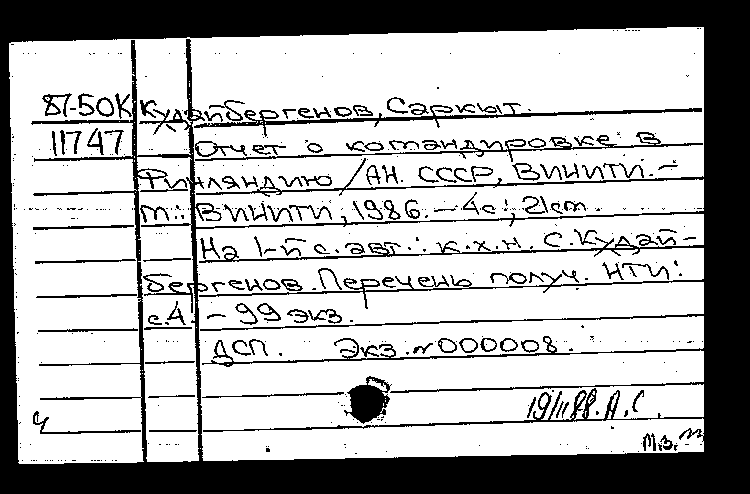 87-50К Кудайбергенов, Саркыт.
11747 Отчет о командировке в
Финляндию / АН. СССР, ВИНИТИ. –
М.: ВИНИТИ, 1986. – 4с.; 21см.
На 1-й с. авт.: к.х.н. С. Кудай-
бергенов. Перечень получ. НТИ:
с.4. – 99 экз.
ДСП. Экз. № 000008.
19/II 88. А.С.
ч
М.З.